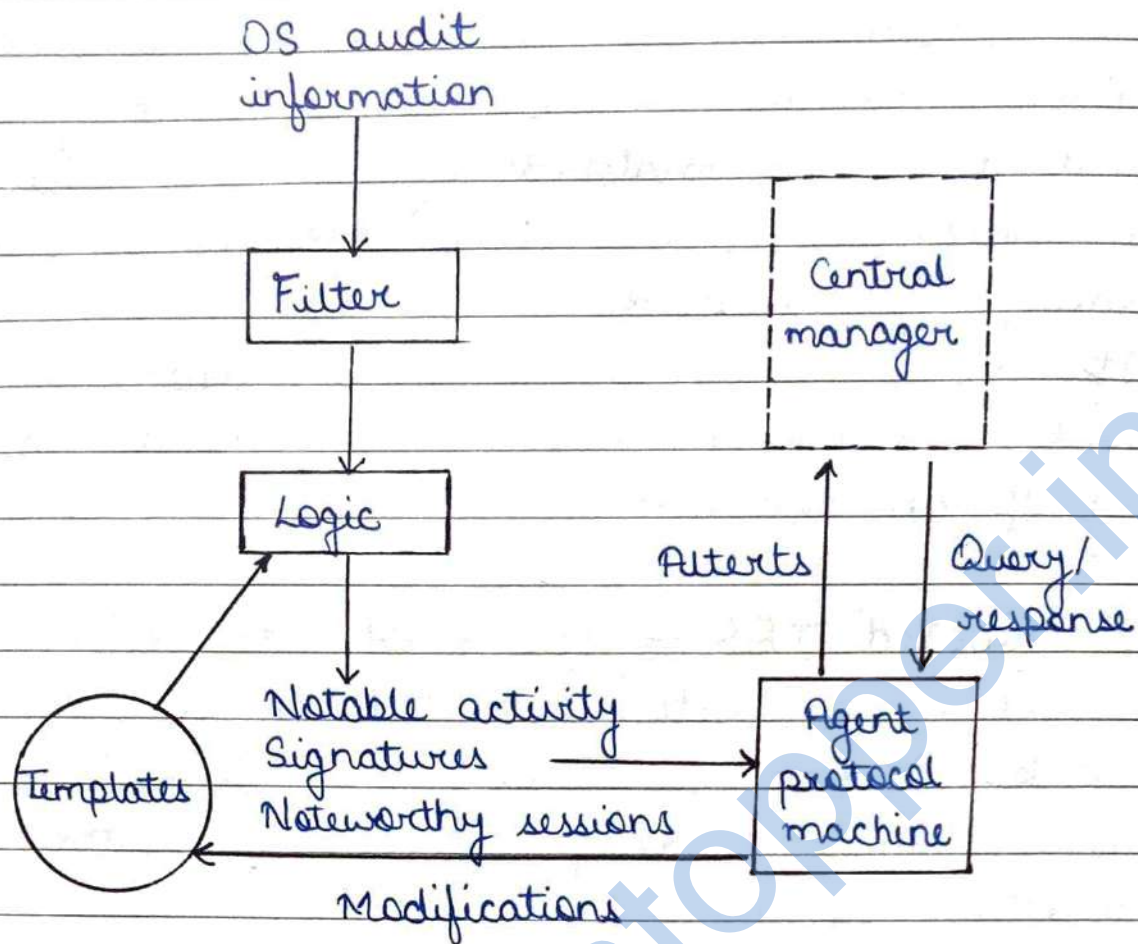 OS audit
information
Filter
Central
manager
Logic
Alterts
Query/
response
Notable activity
Signatures
Noteworthy sessions
Templates
Agent
protocol
machine
Modifications
topper.in